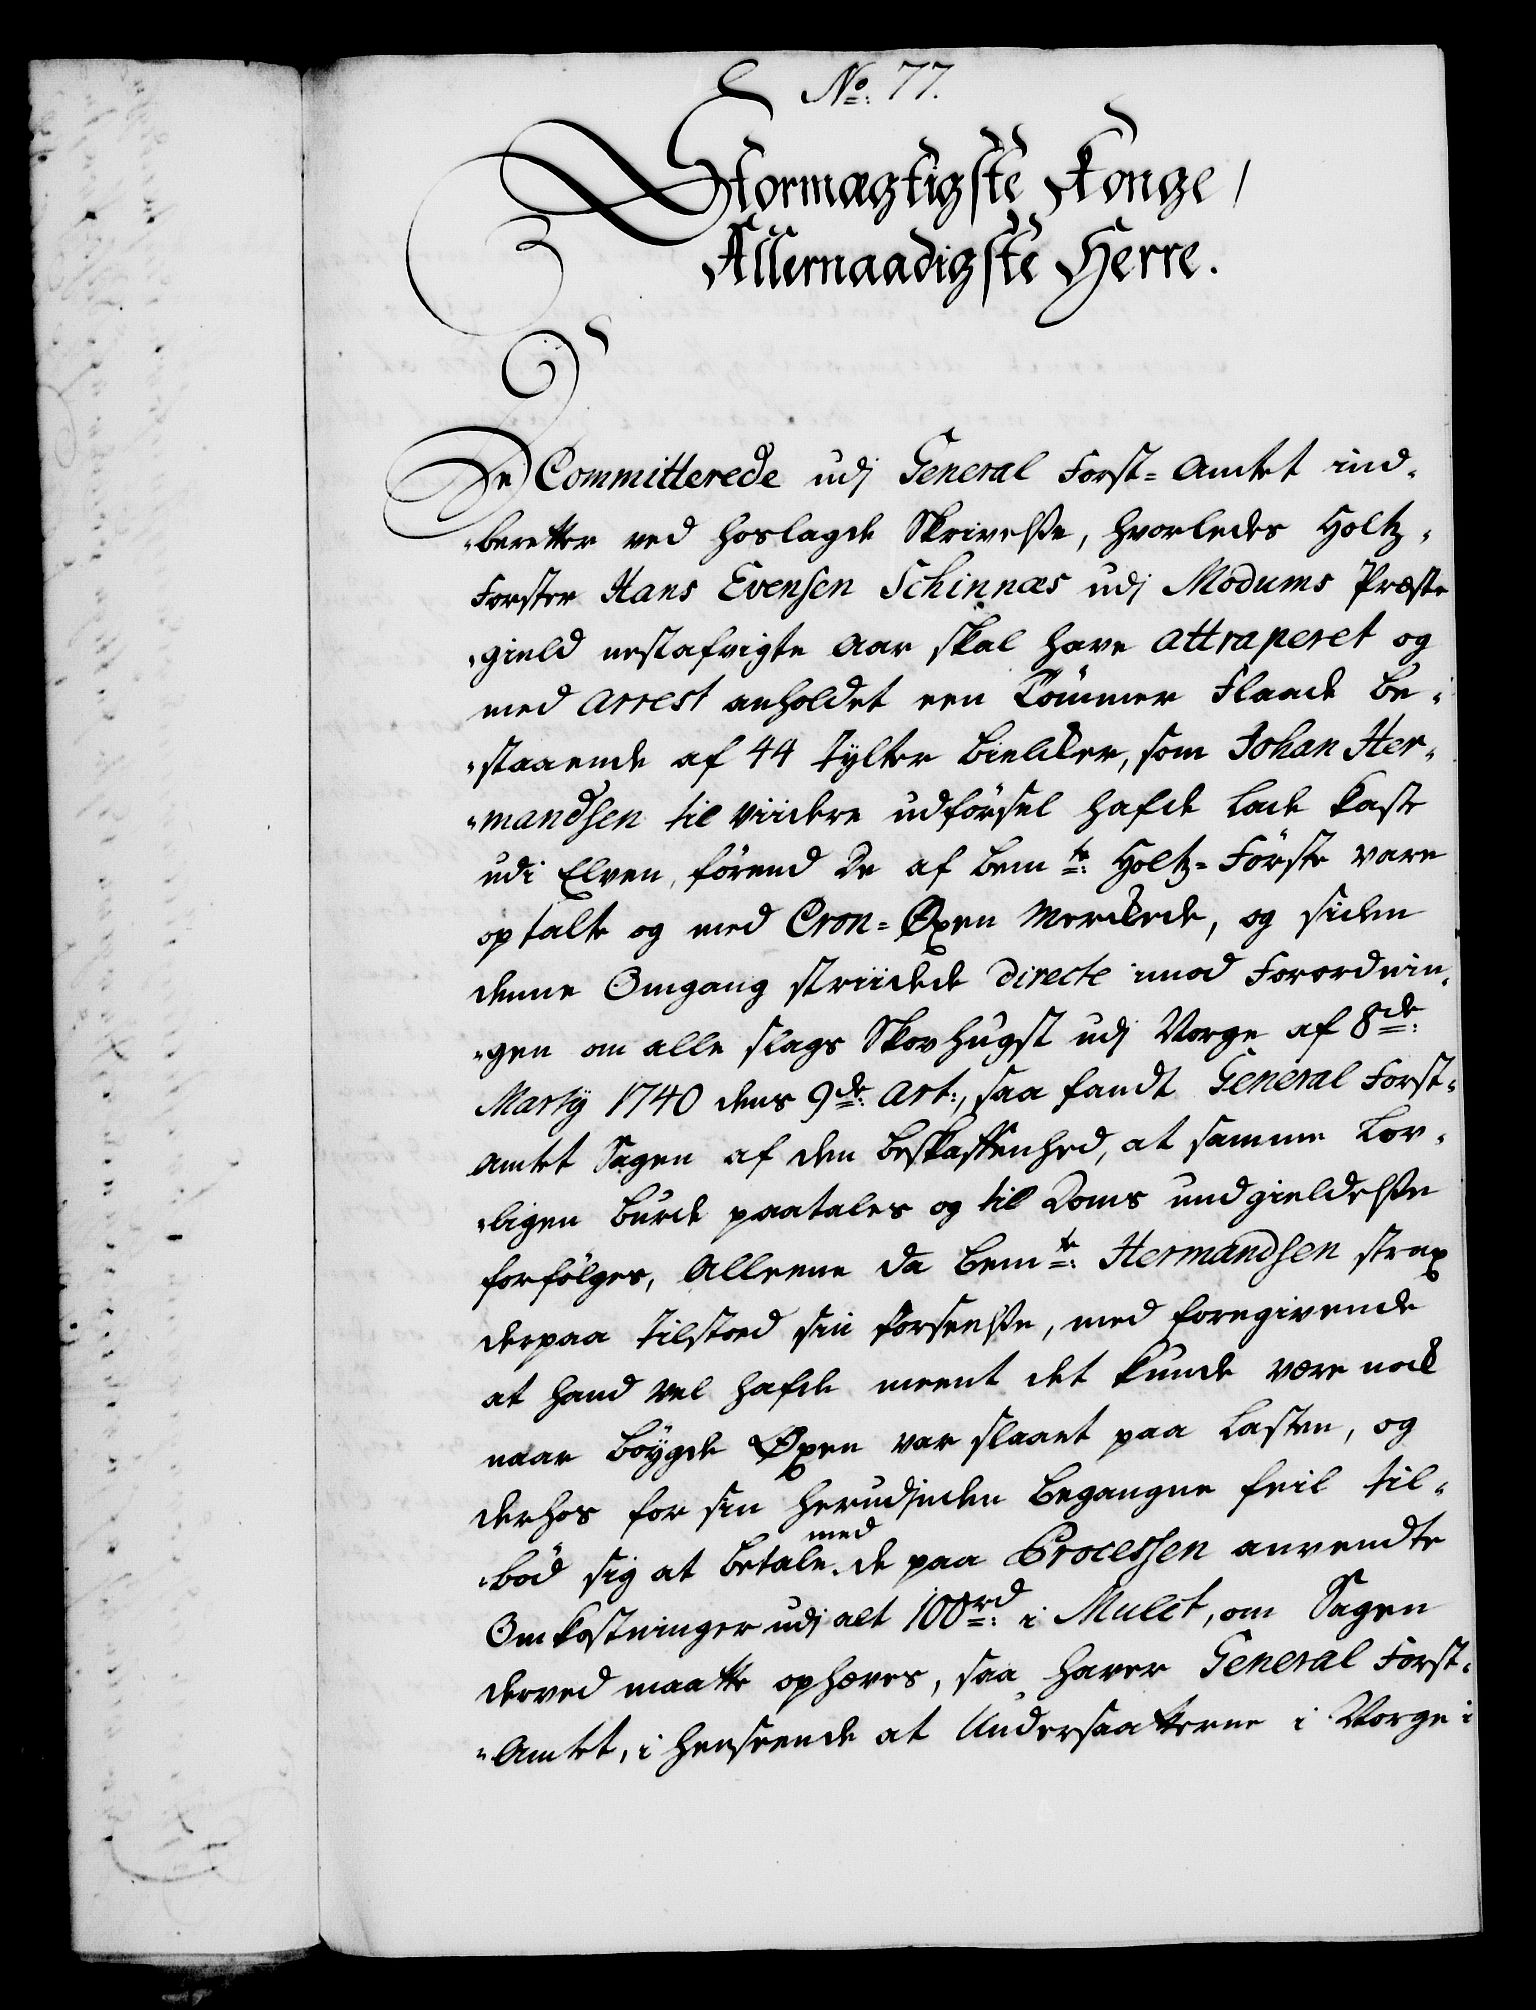 No: 77.
Stormægtigste Konge /
Allernaadigste Herre.
De Committerede udj General Forst=Amtet ind-
-beretter ved hoslagde Skrivelse, hvorledes Holtz-
Forster Hans Evensen Schinnæs udj Modums Præste
-gield nestafvigte Aar skal have attraperet og
med Arrest anholdet een Tömmer Flaade be-
-staaende af 44 Tylter Bielcker, som Johan Her-
-mandsen til viidere udförsel hafde lade kaste
udi Elven, förend De af bemte: Holtz=Förste vare
optalte og med Cron=Øxen Merckede, og siden
denne Omgang striidede directe imod Forordnin-
-gen om alle slags Skovhugst udj Norge af 8de:
Martij 1740 dens 9de: Art:, saa fandt General Forst-
Amtet Sagen af den Beskaffenhed, at samme Lov-
-ligen burde paatales og til Doms undgieldelse
forfölges, Alleene da bemte: Hermandsen strax
derpaa tilstoed sin Forseelse, med foregivende
at hand vel hafde meent det kunde være nock
naar böygde Øxen var slaaet paa Lasten, og
derhos for sin herudjnden begangne feil til-
-böd sig at betale med de paa Processen anvendte
Omkostninger udj alt 100rd: i Mulct, om Sagen
derved maatte ophæves, saa haver General Forst-
-Amtet, i henseende at Undersaatterne i Norge i